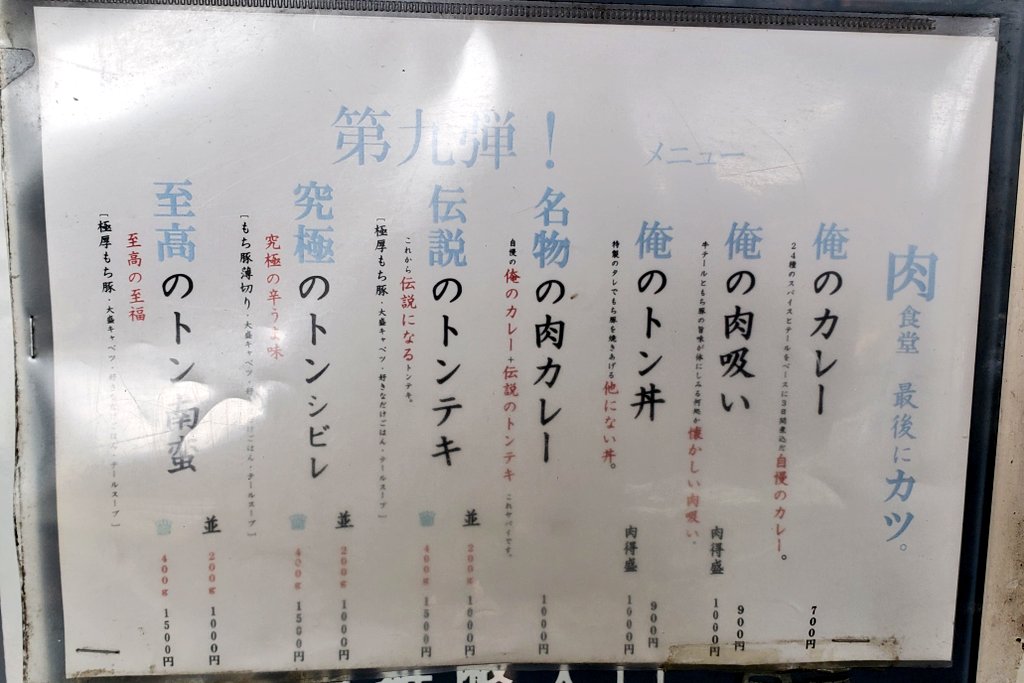 肉食堂 最後にカツ。
メニュー
俺のカレー
24種のスパイスとテールをベースに3日間煮込だ自慢のカレー。
700円
俺の肉吸い
牛テールともち豚の旨味が体にしみる何処か懐かしい肉吸い。
900円
肉得盛 1000円
俺のトン丼
特製のタレでもち豚を焼きあげる他にない丼。
900円
肉得盛 1000円
第九弾！
名物の肉カレー
自慢の俺のカレー+伝説のトンテキ これヤバイです。
1000円
伝説のトンテキ
これから伝説になるトンテキ。
［極厚もち豚・大盛キャベツ・好きなだけごはん・テールスープ］
並 200g 1000円
400g 1500円
究極のトンシビレ
究極の辛うま味
［もち豚薄切り・大盛キャベツ・好 けごはん・テールスープ］
並 200g 1000円
400g 1500円
至高のトン南蛮
至高の至福
［極厚もち豚・大盛キャベツ・好き ごはん・テールスープ］
並 200g 1000円
400g 1500円